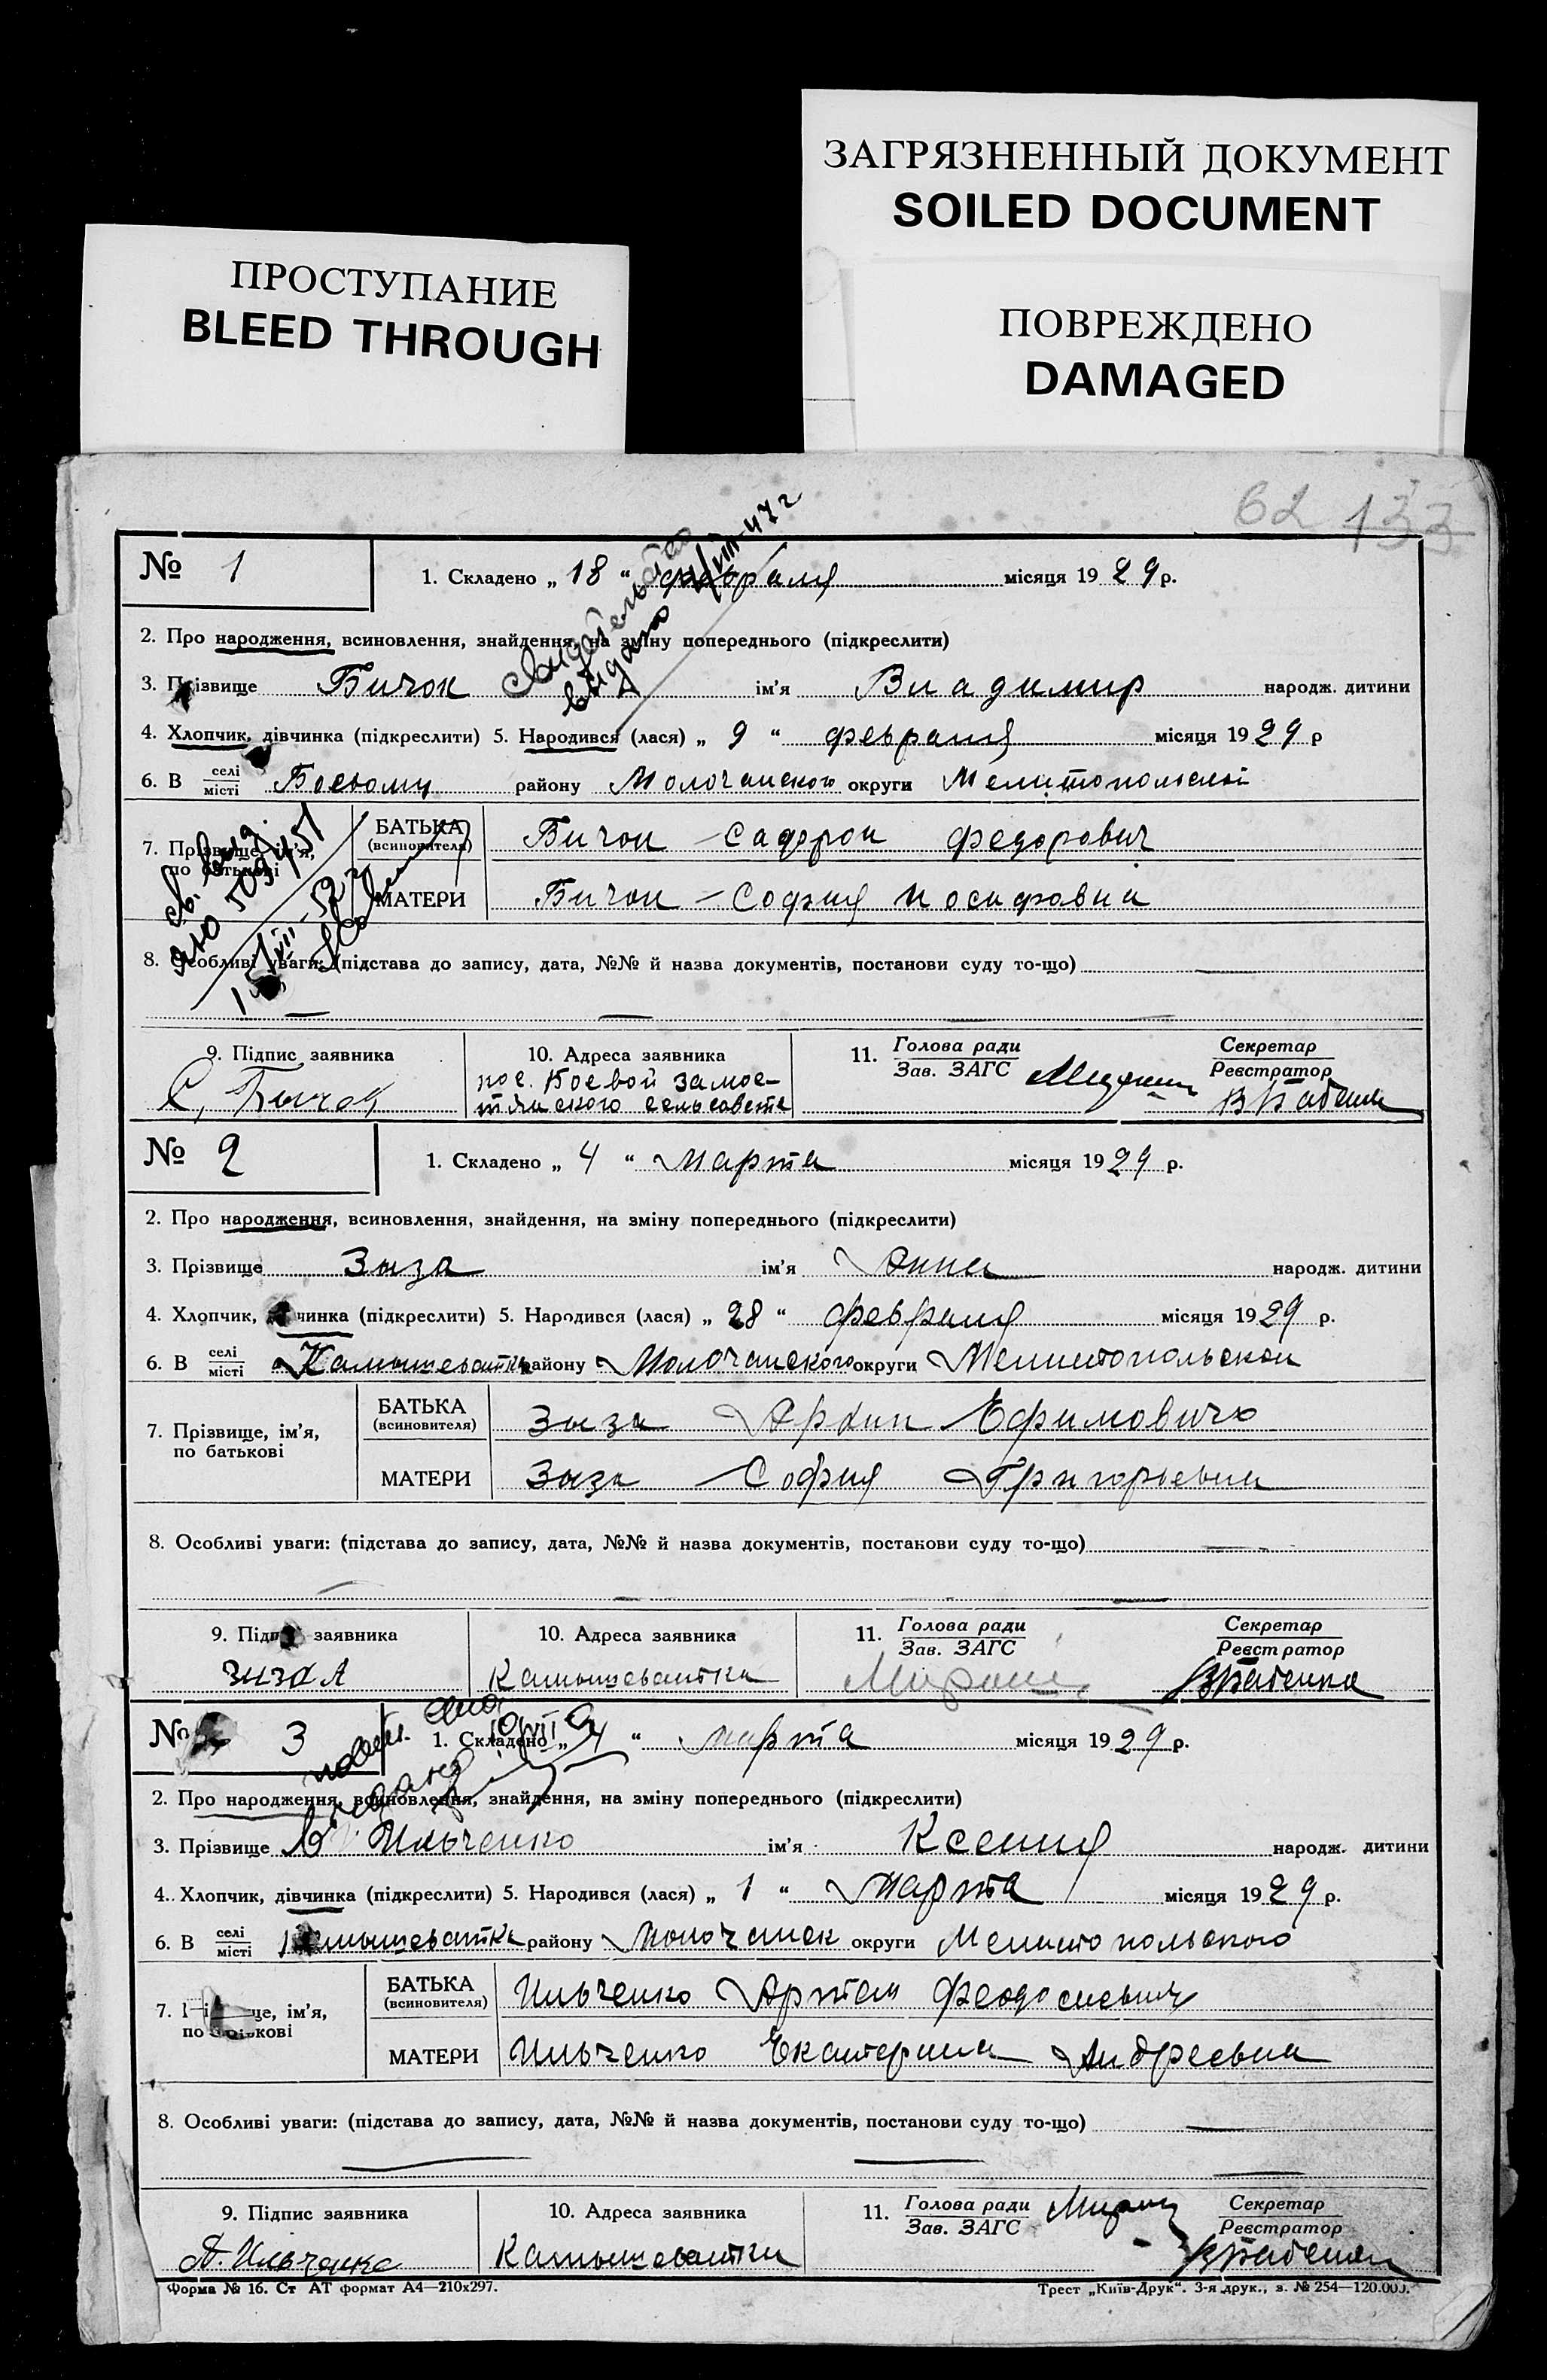 ЗАГРЯЗНЕННЫЙ ДОКУМЕНТ
SOILED DOCUMENT
ПРОСТУПАНИЕ
BLEED THROUGH
ПОВРЕЖДЕНО
DAMAGED
62 133
№ 1 1. Складено „ 18 “ февраля місяця 1929 р.
свидетельство
видано
2. Про народження, всиновлення, знайдення, на зміну попереднього (підкреслити)
3. Прізвище Бичок ім'я Владимир народж. дитини
4. Хлопчик, дівчинка (підкреслити) 5. Народився (лася) „ 9 “ февраля місяця 1929 р
6. В селі/місті Боевому району Молочанского округи Мелитопольской
7. Прізвище, ім'я, по батькові БАТЬКА (всиновителя) Бичок Федорович
МАТЕРИ Бичок София Иосифовна
8. Особливі уваги: (підстава до запису, дата, №№ й назва документів, постанови суду то-що)
9. Підпис заявника 10. Адреса заявника 11. Голова ради/Зав. ЗАГС Секретар/Реєстратор
С. Бичок пос. Боевой Замос-
тянского сельсовета
№ 2 1. Складено „ 4 “ Марта місяця 1929 р.
2. Про народження, всиновлення, знайдення, на зміну попереднього (підкреслити)
3. Прізвище Зыза ім'я Анна народж. дитини
4. Хлопчик, дівчинка (підкреслити) 5. Народився (лася) „ 28 “ февраля місяця 1929 р.
6. В селі/місті Камышеватка району Молочанского округи Мелитопольской
7. Прізвище, ім'я, по батькові БАТЬКА (всиновителя) Зыза Ефимович
МАТЕРИ Зыза София Григорьевна
8. Особливі уваги: (підстава до запису, дата, №№ й назва документів, постанови суду то-що)
9. Підпис заявника 10. Адреса заявника 11. Голова ради/Зав. ЗАГС Секретар/Реєстратор
Зиза А Камышеватка
№ 3 1. Складено „ 4 “ марта місяця 1929 р.
2. Про народження, всиновлення, знайдення, на зміну попереднього (підкреслити)
3. Прізвище Ильченко ім'я Ксения народж. дитини
4. Хлопчик, дівчинка (підкреслити) 5. Народився (лася) „ 1 “ Марта місяця 1929 р.
6. В селі/місті Камышеватка району Молочанск округи Мелитопольского
7. Прізвище, ім'я, по батькові БАТЬКА (всиновителя) Ильченко Артем Феодосиевич
МАТЕРИ Ильченко Екатерина Андреевна
8. Особливі уваги: (підстава до запису, дата, №№ й назва документів, постанови суду то-що)
9. Підпис заявника 10. Адреса заявника 11. Голова ради/Зав. ЗАГС Секретар/Реєстратор
А. Ильченко Камышеватка
Форма № 16. Ст АТ формат А4—210х297. Трест „Київ-Друк“. 3-я друк., з. № 254—120.000.